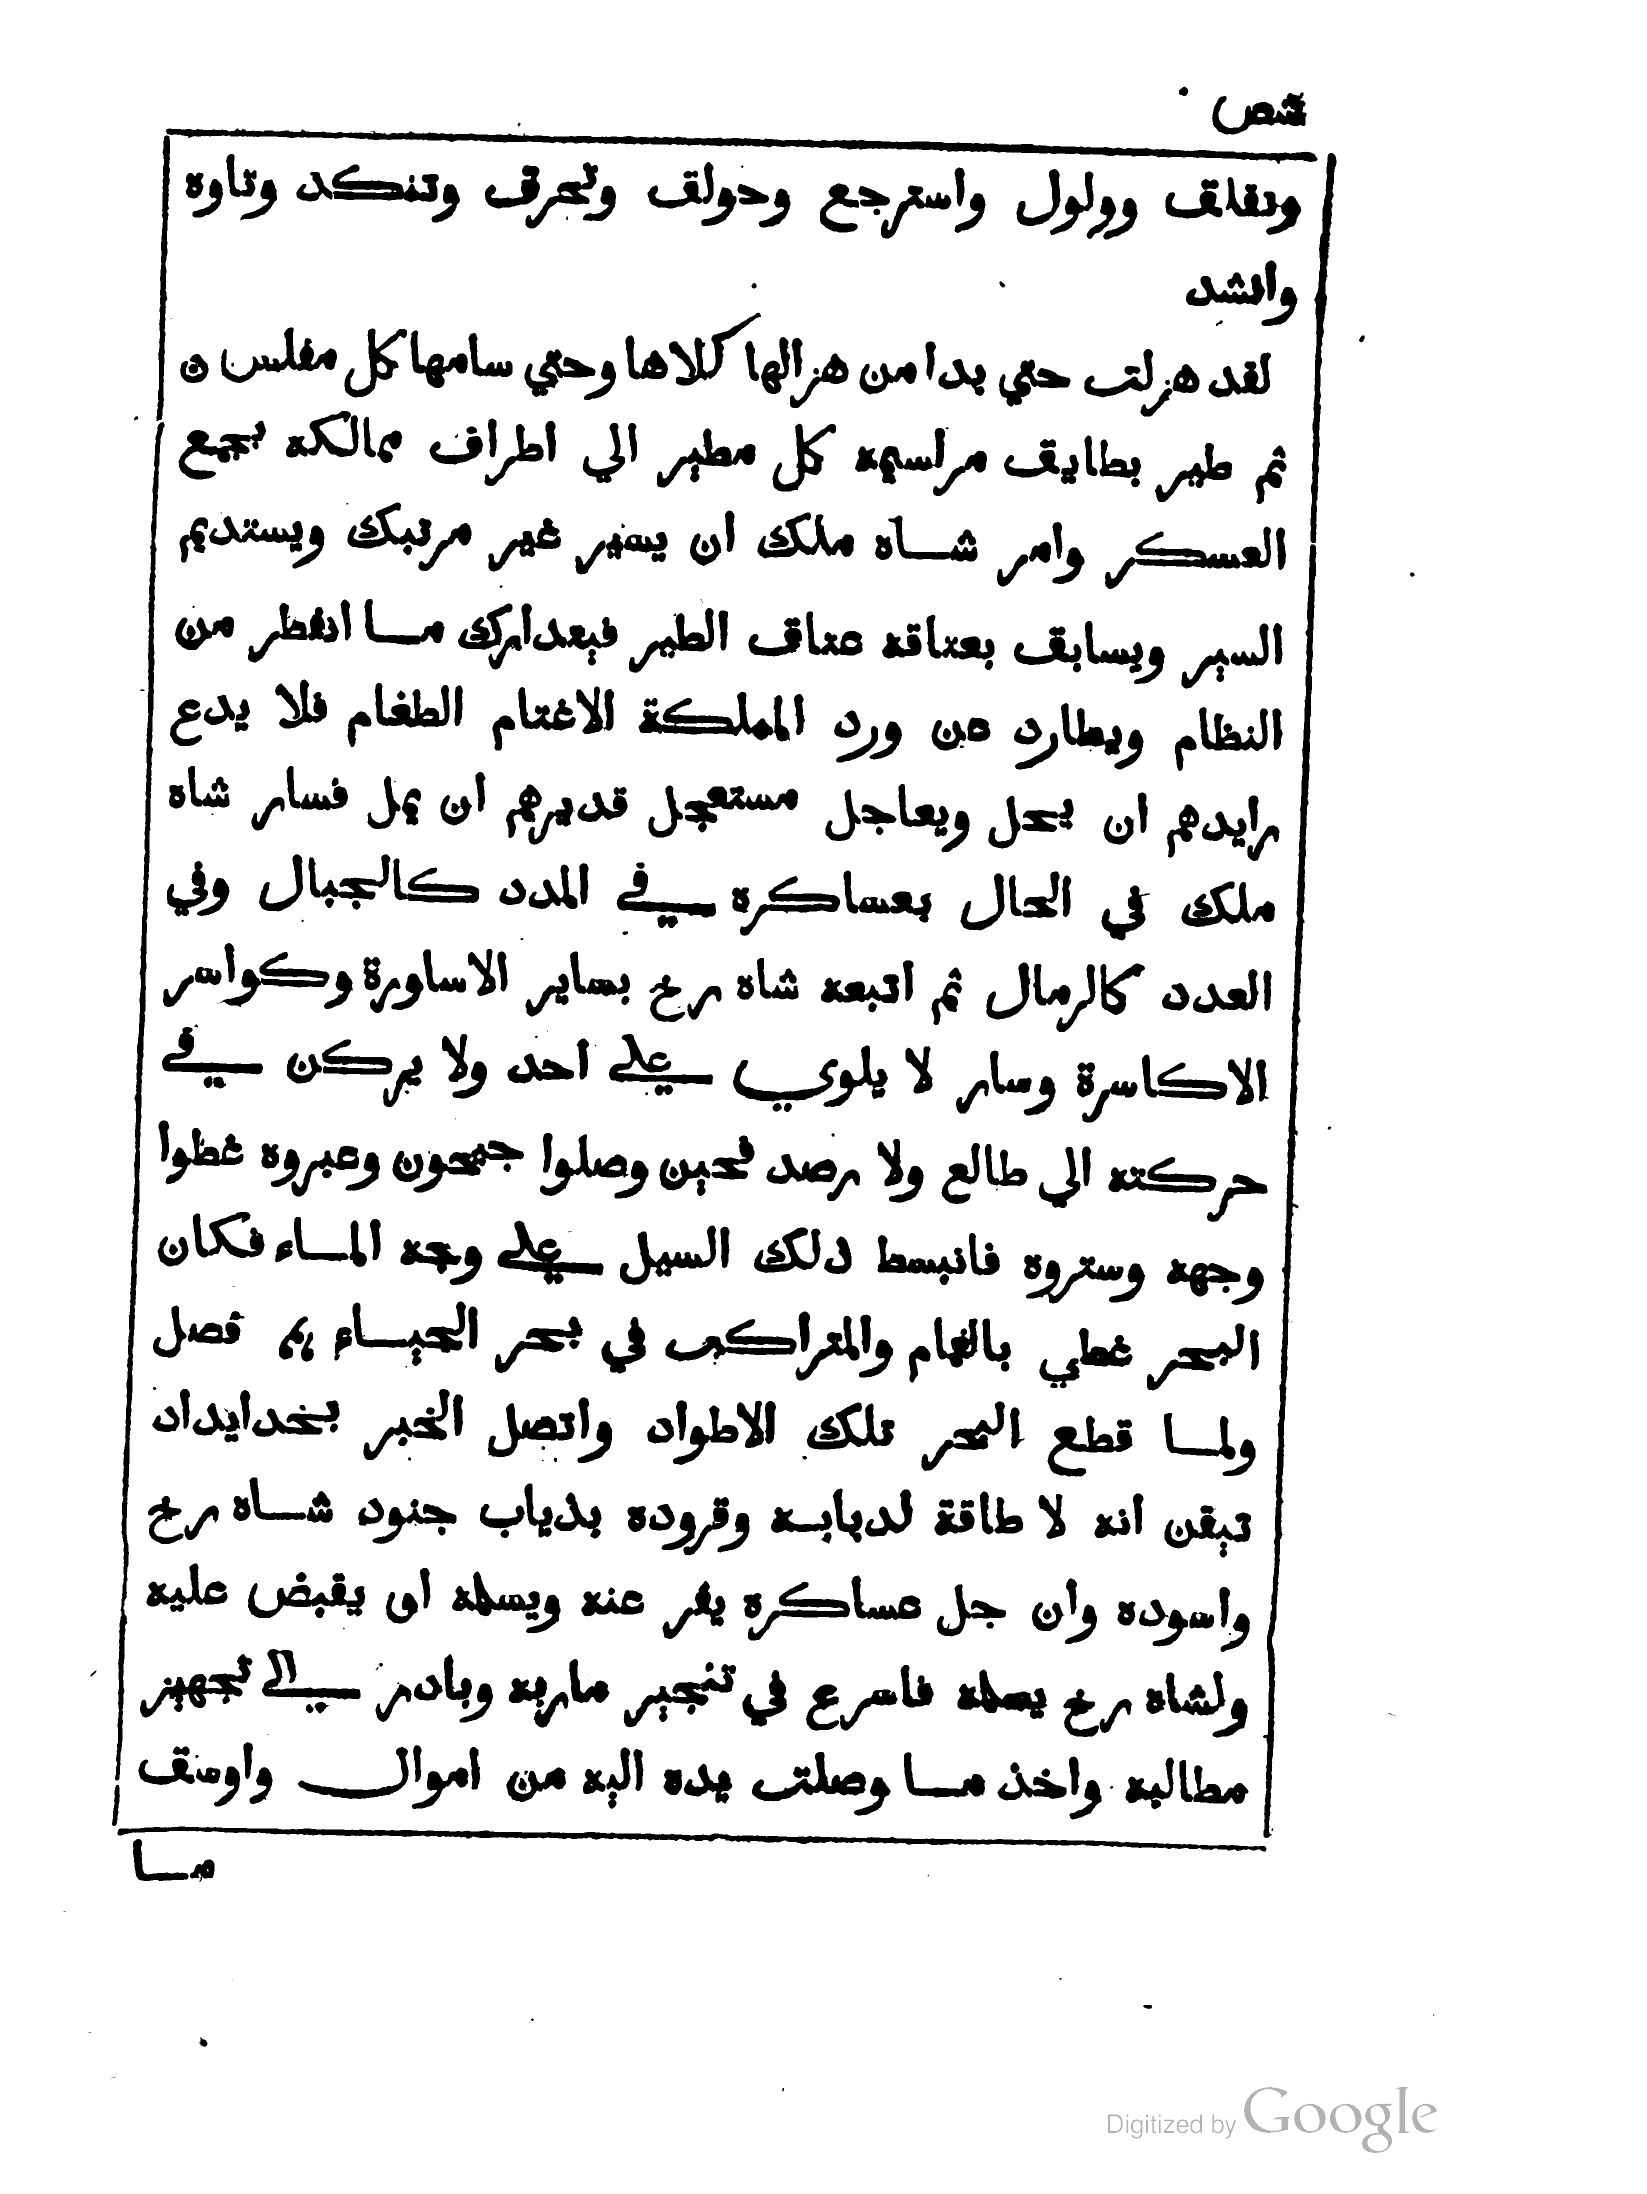 شص
وتقلق وولول واسترجع وحولق وتحرق وتنكد وتاوه
وانشد
لقد هزلت حتي بدا من هزالها كلاها وحتي سامها كل مفلس ن
ثم طير بطايق مراسيمه كل مطير الي اطراف ممالكه بجمع
العسكر وامر شاه ملك ان يسير غير مرتبك ويستديم
السير ويسابق بعتاقه عتاق الطير فيعدارك ما انفطر من
النظام ويطارد عن ورد المملكة الاغتام الطغام فلا يدع
رايدهم ان يحل ويعاجل مستعجل قديرهم ان يمل فسار شاه
ملك في الحال بعساكره في المدد كالجبال وفي
العدد كالرمال ثم اتبعه شاه رخ بساير الاساورة وكواسر
الاكاسرة وسار لا يلوي علي احد ولا يركن في
حركته الي طالع ولا رصد فحين وصلوا جيحون وعبروه غطوا
وجهه وستروه فانبسط ذلك السيل علي وجه الماء فكان
البحر غطي بالغمام والمتراكب في بحر الحياء فصل
ولما قطع البحر تلك الاطواد واتصل الخبر بخدايداد
تيقن انه لا طاقة لدبابه وقروده بذياب جنود شاه رخ
واسوده وان جل عساكره يفر عنه ويسلمه او يقبض عليه
ولشاه رخ يسلمه فاسرع في تنجيز ماربه وبادر الي تجهيز
مطالبه واخذ ما وصلت يده اليه من اموال واوسق
ما
Digitized by Google